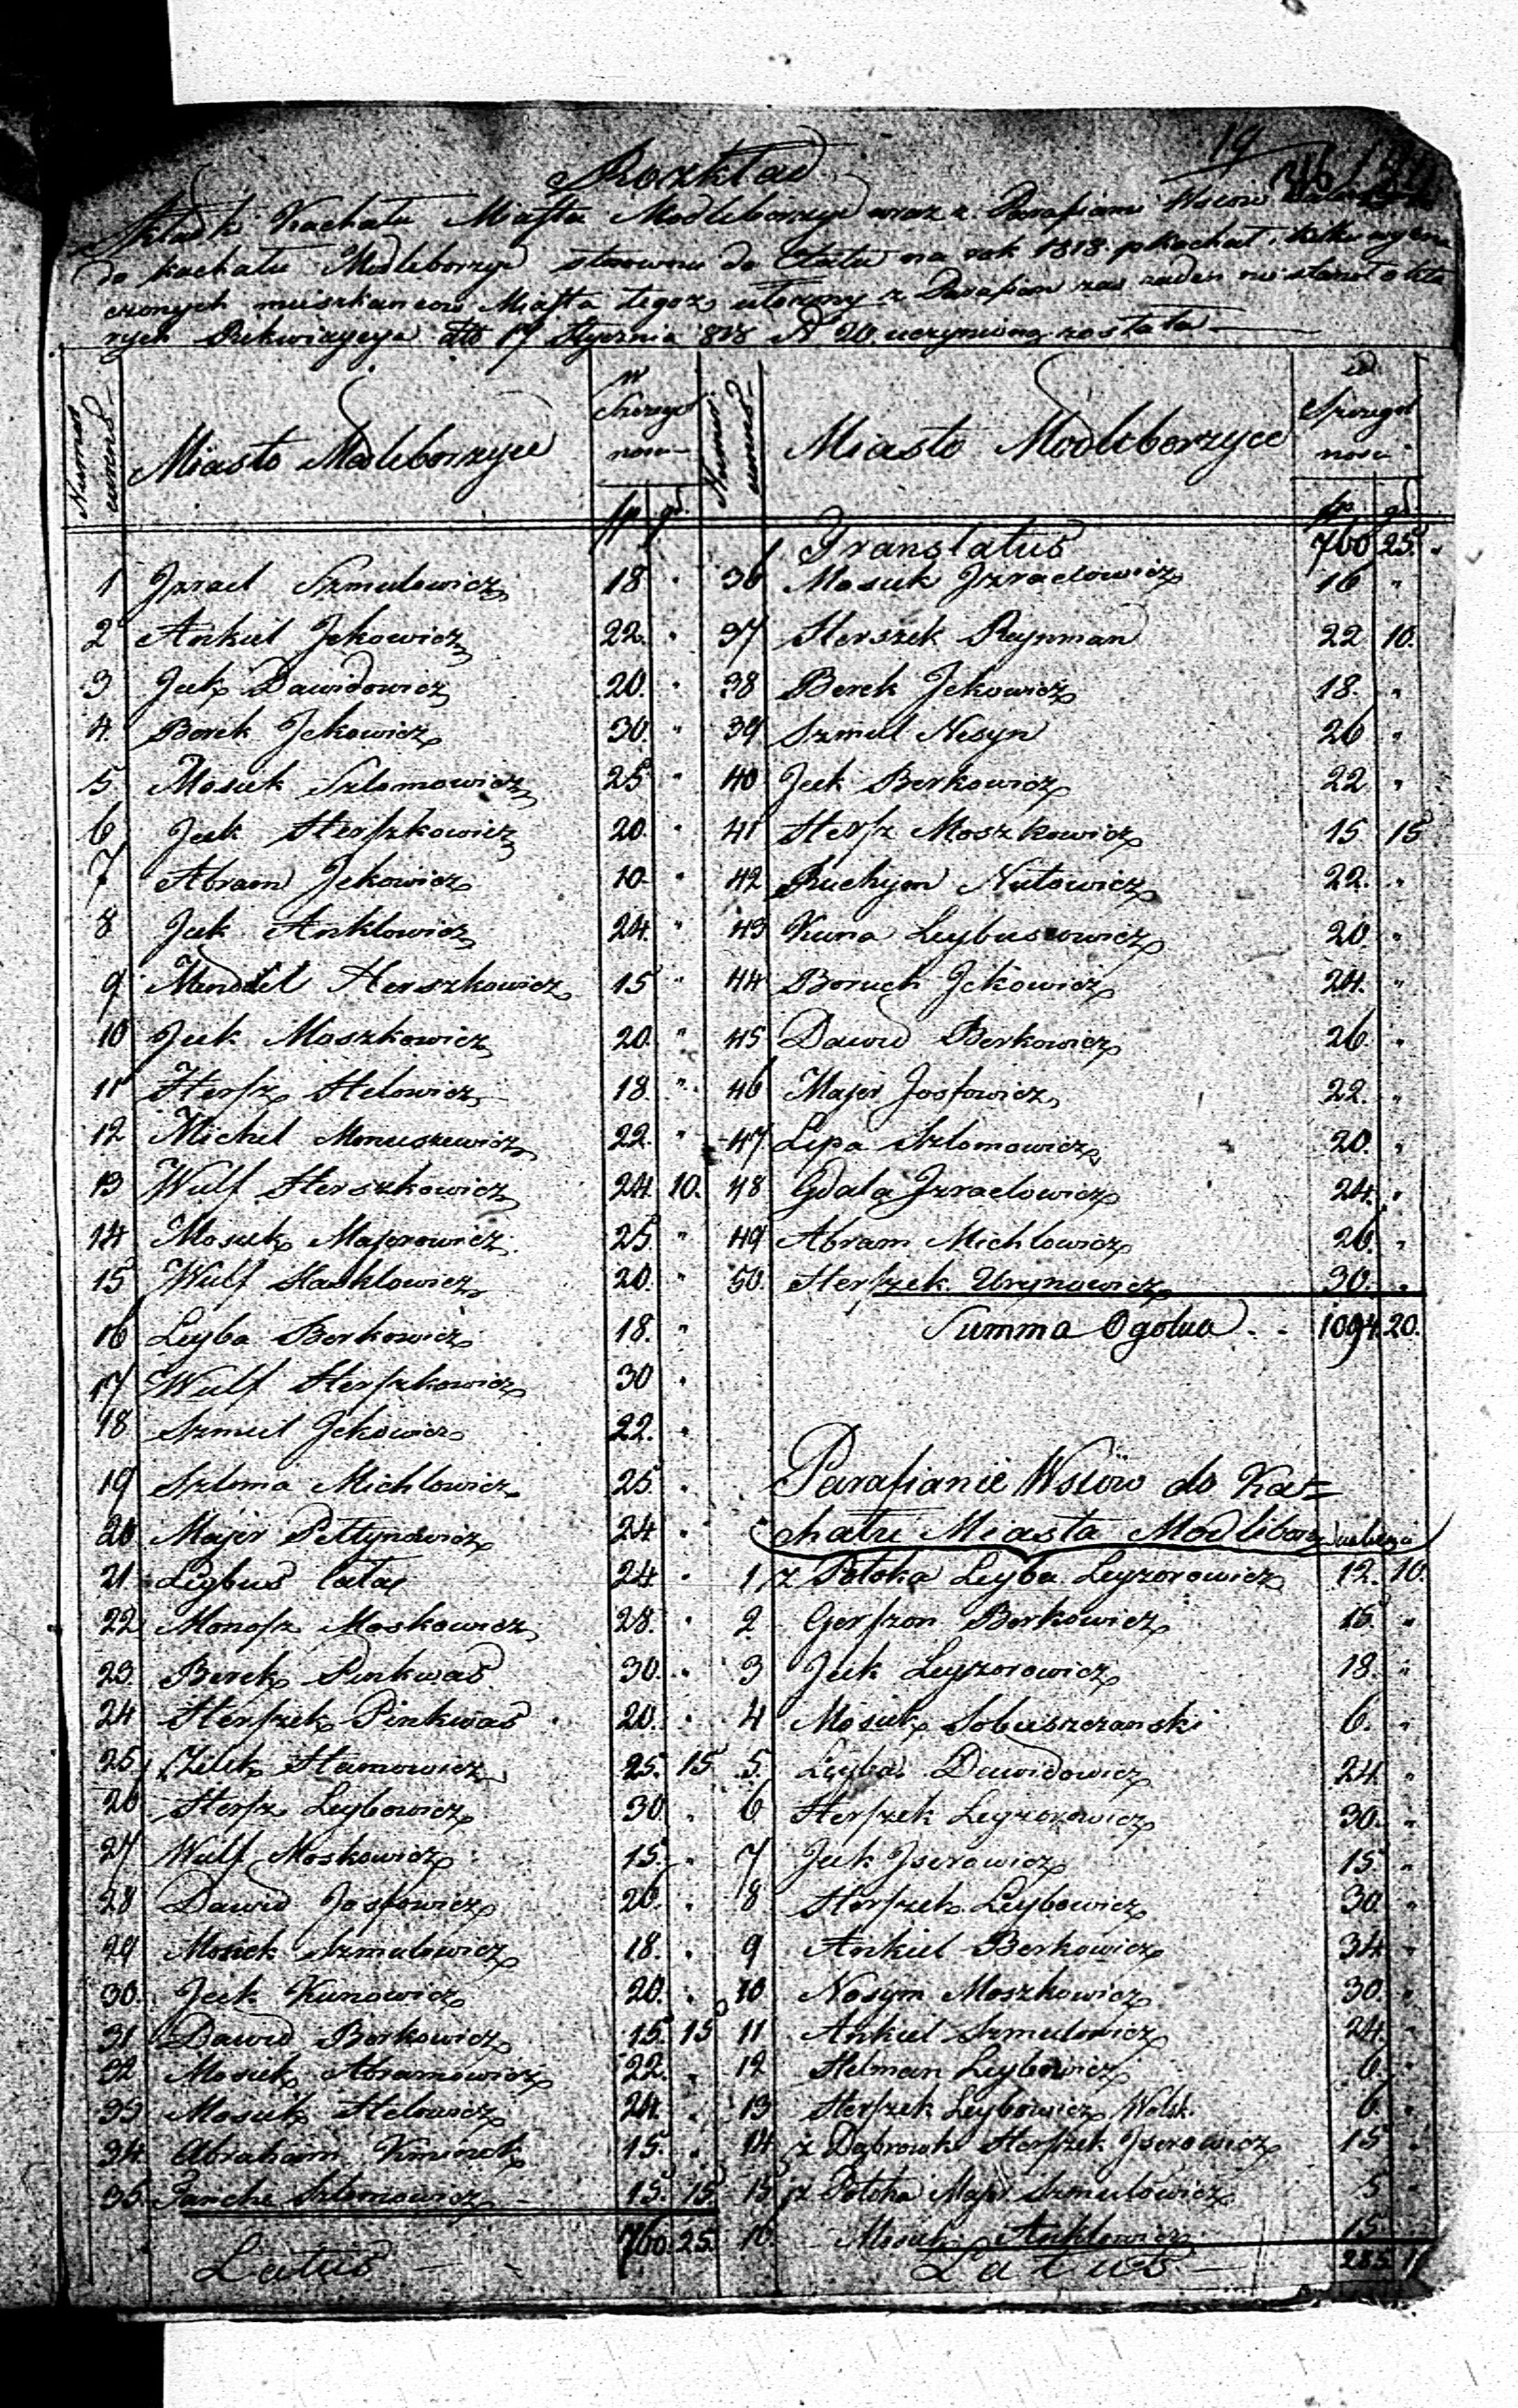 19
Rozkład
Składki Kachału Miasta Modleborzyc wraz z Parafiami Wsiów
do kachału Modleborzyc stosownie do Etatu na rok 1818 p Kachał i kilku
czonych mieszkancow Miasta tegoz ułozony z Parafian zas zaden nie stanoł o któ
rych Rekwizycya dto 17 Stycznia 818 N 20. uczyniona została
Numer currens
Miasto Modleborzyce
w Szczegol nosci
fp gr
1 Jzrael Szmulowicz 18 "
2 Ankiel Jckowicz 22. "
3 Jcek Dawidowicz 20. "
4. Berek Jckowicz 30. "
5 Mosiek Szlomowicz 25 "
6 Jcek Herszkowicz 20. "
7 Abram Jckowicz 10. "
8 Jcek Anklowicz 24. "
9 Mendel Herszkowicz 15 "
10 Jcek Moszkowicz 20. "
11 Hersz Helowicz 18. "
12 Michel Monuszewicz 22. "
13 Wulf Herszkowicz 24. 10.
14 Mosiek Majerowicz 25 "
15 Wulf Haskłowicz 20. "
16 Leyba Berkowicz 18. "
17 Wulf Herszkowicz 30 "
18 Szmul Jckowicz 22. "
19 Szloma Michlowicz 25 "
20 Majer Peltynowicz 24 "
21 Leybus 24 "
22 Monosz Moskowicz 28. "
23. Berek Pinkwas 30. "
24 Herszek Pinkwas 20. "
25 Zelek Hamowicz 25. 15
26 Hersz Leybowicz 30. "
27 Wulf Moskowicz 15. "
28 Dawid Josfowicz 26. "
29 Mosiek Szmulowicz 18. "
30. Jcek Kunowicz 20. "
31 Dawid Berkowicz 15. 15
32 Mosiek Abramowicz 22. "
33 Mosiek Helowicz 24. "
34. Abraham 15. "
35. Szlomowicz 15. 15.
Latus 760. 25.
Numer currens
Miasto Modleborzyce
w Szczegol nosci
fp gr
Translatus 760 25.
36 Mosiek Jzraelowicz 16 "
37 Herszek Reynman 22 10.
38 Berek Jckowicz 18. "
39 Szmul Nesyn 26 "
40 Jcek Berkowicz 22 "
41 Hersz Moszkowicz 15. 15
42 Ruchym Nutowicz 22. "
43 Kuna Leybusiowicz 20 "
44 Boruch Jckowicz 24. "
45 Dawid Berkowicz 26 "
46 Majer Josfowicz 22. "
47 Lipa Szlomowicz 20. "
48 Gdala Jzraelowicz 24. "
49 Abram Michlowicz 26. "
50. Herszek Urynowicz 30. "
Summa Ogolna 1094. 20.
Parafianie Wsiów do Ka=
chału Miasta Modliborz
1 z Potoka Leyba Leyzorowicz 12. 10.
2. Gerszon Berkowicz 15. "
3 Jcek Leyzorowicz 18. "
4 Mosiek Sobieszczanski 6. "
5. Leybus Dawidowicz 24 "
6 Herszek Leyzorowicz 30. "
7 Jcek Jserowicz 15. "
8 Herszek Leybowicz 30 "
9 Ankiel Berkowicz 34. "
10 Nosym Moszkowicz 30. "
11 Ankiel Szmulowicz 24. "
12 Helman Leybowicz 6. "
13 Herszek Leybowicz Wolsk. 6. "
14 z Dąbrowki Herszek Jserowicz 15 "
15 z Potoka Majer Szmulowicz 5 "
16. Mosiek Anklowicz 15
Latus 285